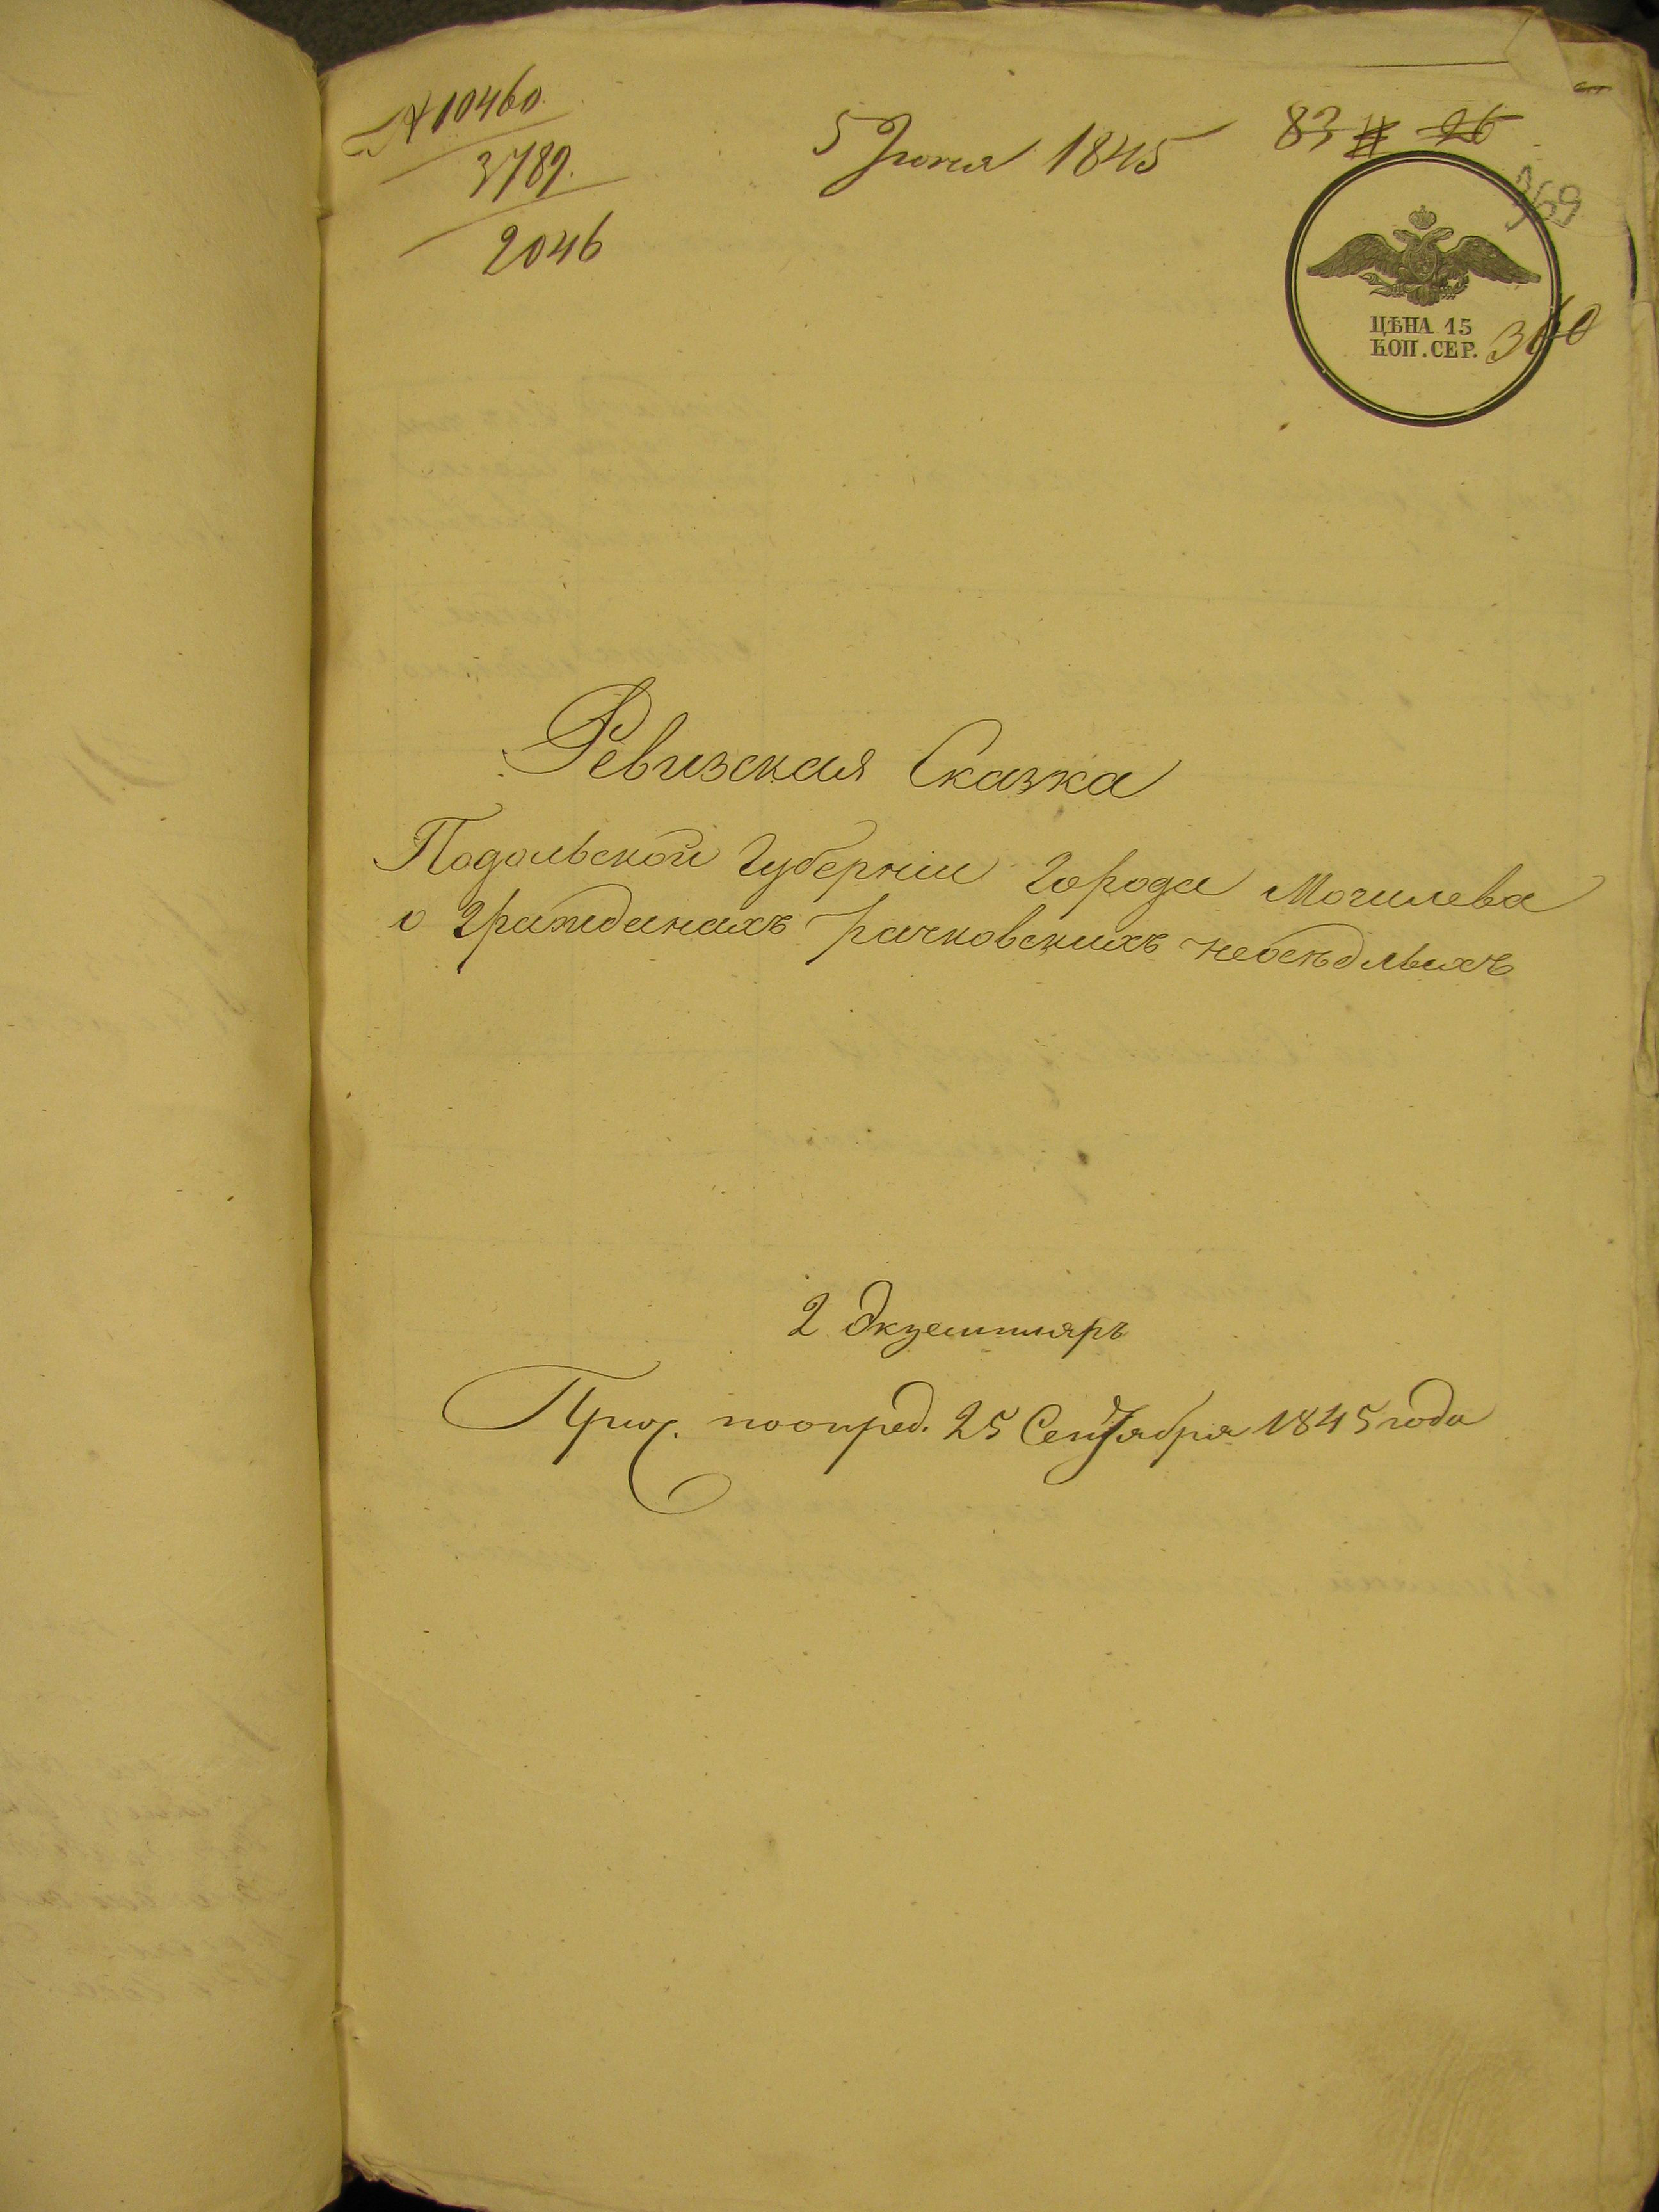 № 10460.
3789.
2046
5 Іюня 1845
83 26
369
ЦѢНА 15
КОП. СЕР.
360
Ревизская Сказка
Подольской Губерніи Города Могилева
о Гражданахъ Рачковскихъ неосѣдлыхъ
2 Экземпляръ
поопред. 25 Сентября 1845 года